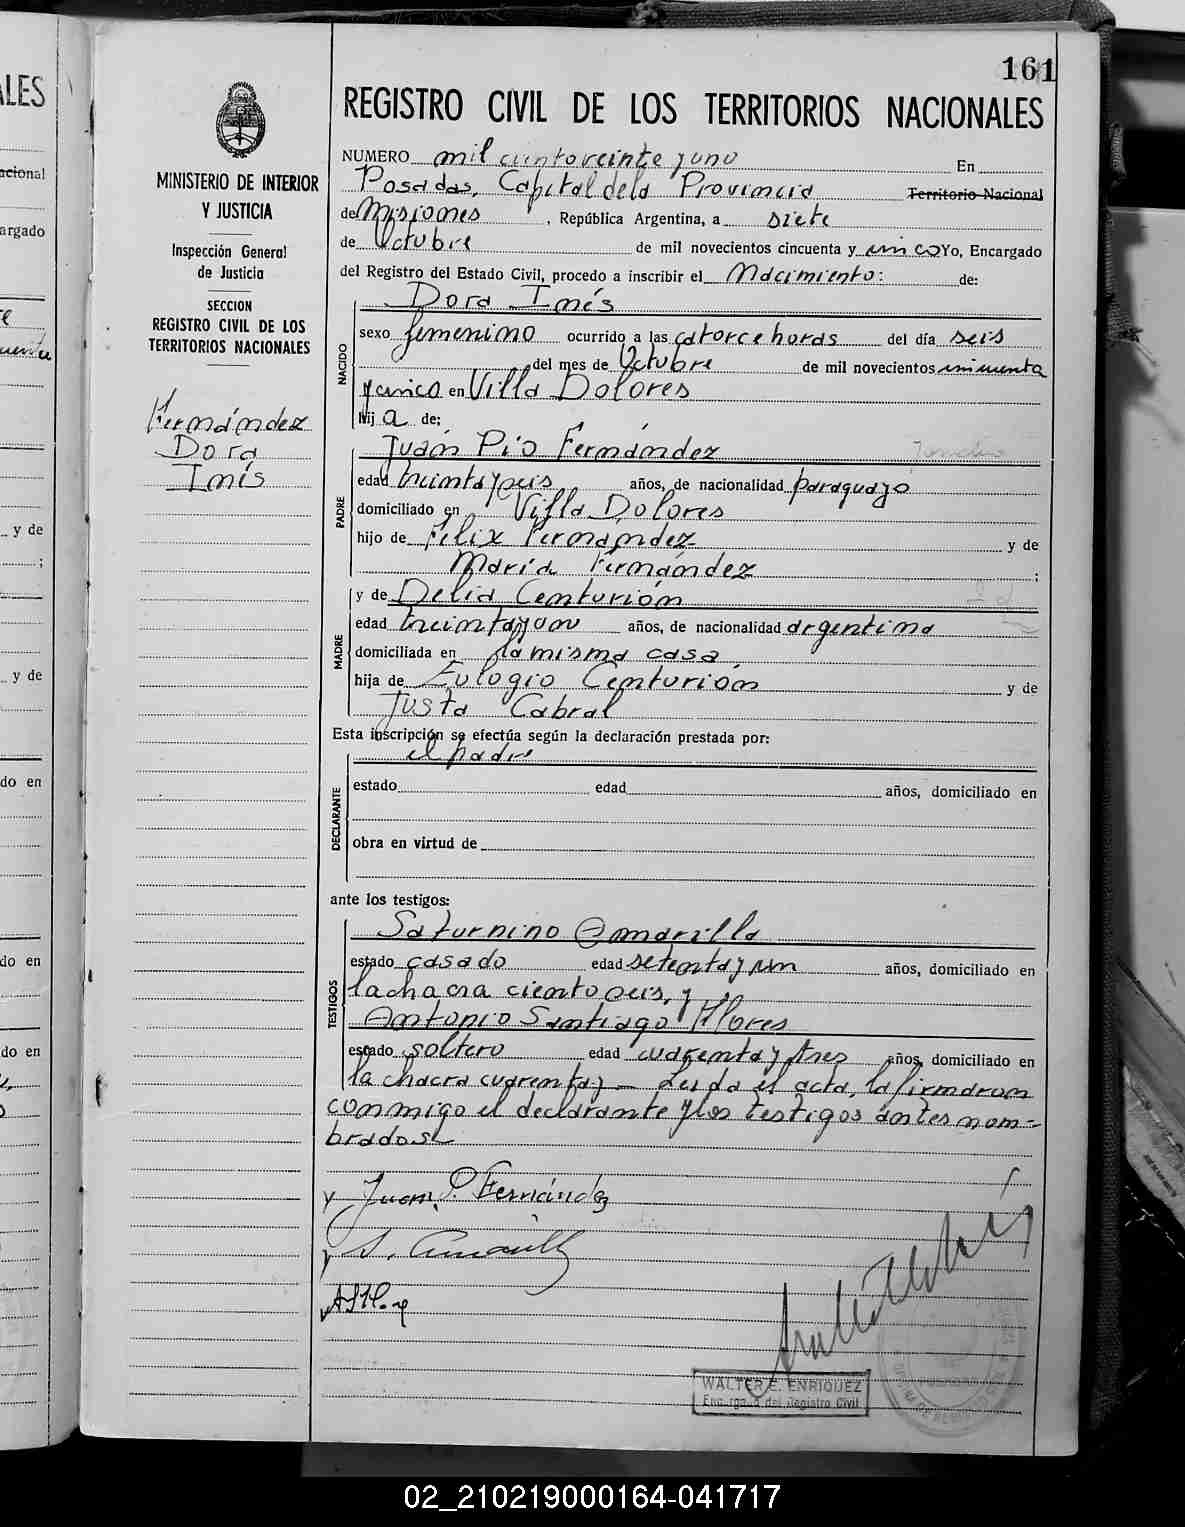 161
REGISTRO CIVIL DE LOS TERRITORIOS NACIONALES
MINISTERIO DE INTERIOR
Y JUSTICIA
Inspección General
de Justicia
SECCION
REGISTRO CIVIL DE LOS
TERRITORIOS NACIONALES
Fernández
Dora
Inés
NUMERO mil cientoveinte y uno En
Posadas, Capital dela Provincia Territorio Nacional
de Misiones, República Argentina, a siete
de Octubre de mil novecientos cincuenta y cinco Yo, Encargado
del Registro del Estado Civil, procedo a inscribir el Nacimiento: de:
NACIDO
Dora Inés
sexo femenino ocurrido a las catorce horas del día seis
del mes de Octubre de mil novecientos cincuenta
y cinco en Villa Dolores
hij a de:
PADRE
Juan Pío Fernández
edad treinta y seis años, de nacionalidad paraguayo
domiciliado en Villa Dolores
hijo de Felix Fernandez y de
María Fernández ;
MADRE
y de Delia Centurión
edad treinta y un años, de nacionalidad argentina
domiciliada en la misma casa,
hija de Eulogio Centurión y de
Justa Cabral
Esta inscripción se efectúa según la declaración prestada por:
el padre
DECLARANTE
estado edad años, domiciliado en
obra en virtud de
ante los testigos:
TESTIGOS
Saturnino Amarilla
estado casado edad setenta y un años, domiciliado en
la chacra ciento seis, y
Antonio Santiago Flores
estado soltero edad cuarenta y tres años, domiciliado en
la chacra cuarenta y — Leída el acta, la firmaron
conmigo el declarante y los testigos antes nom-
brados
Juan P. Fernández
S. Amarilla
WALTER E. ENRIQUEZ
Encargado del Registro Civil
02_210219000164-041717